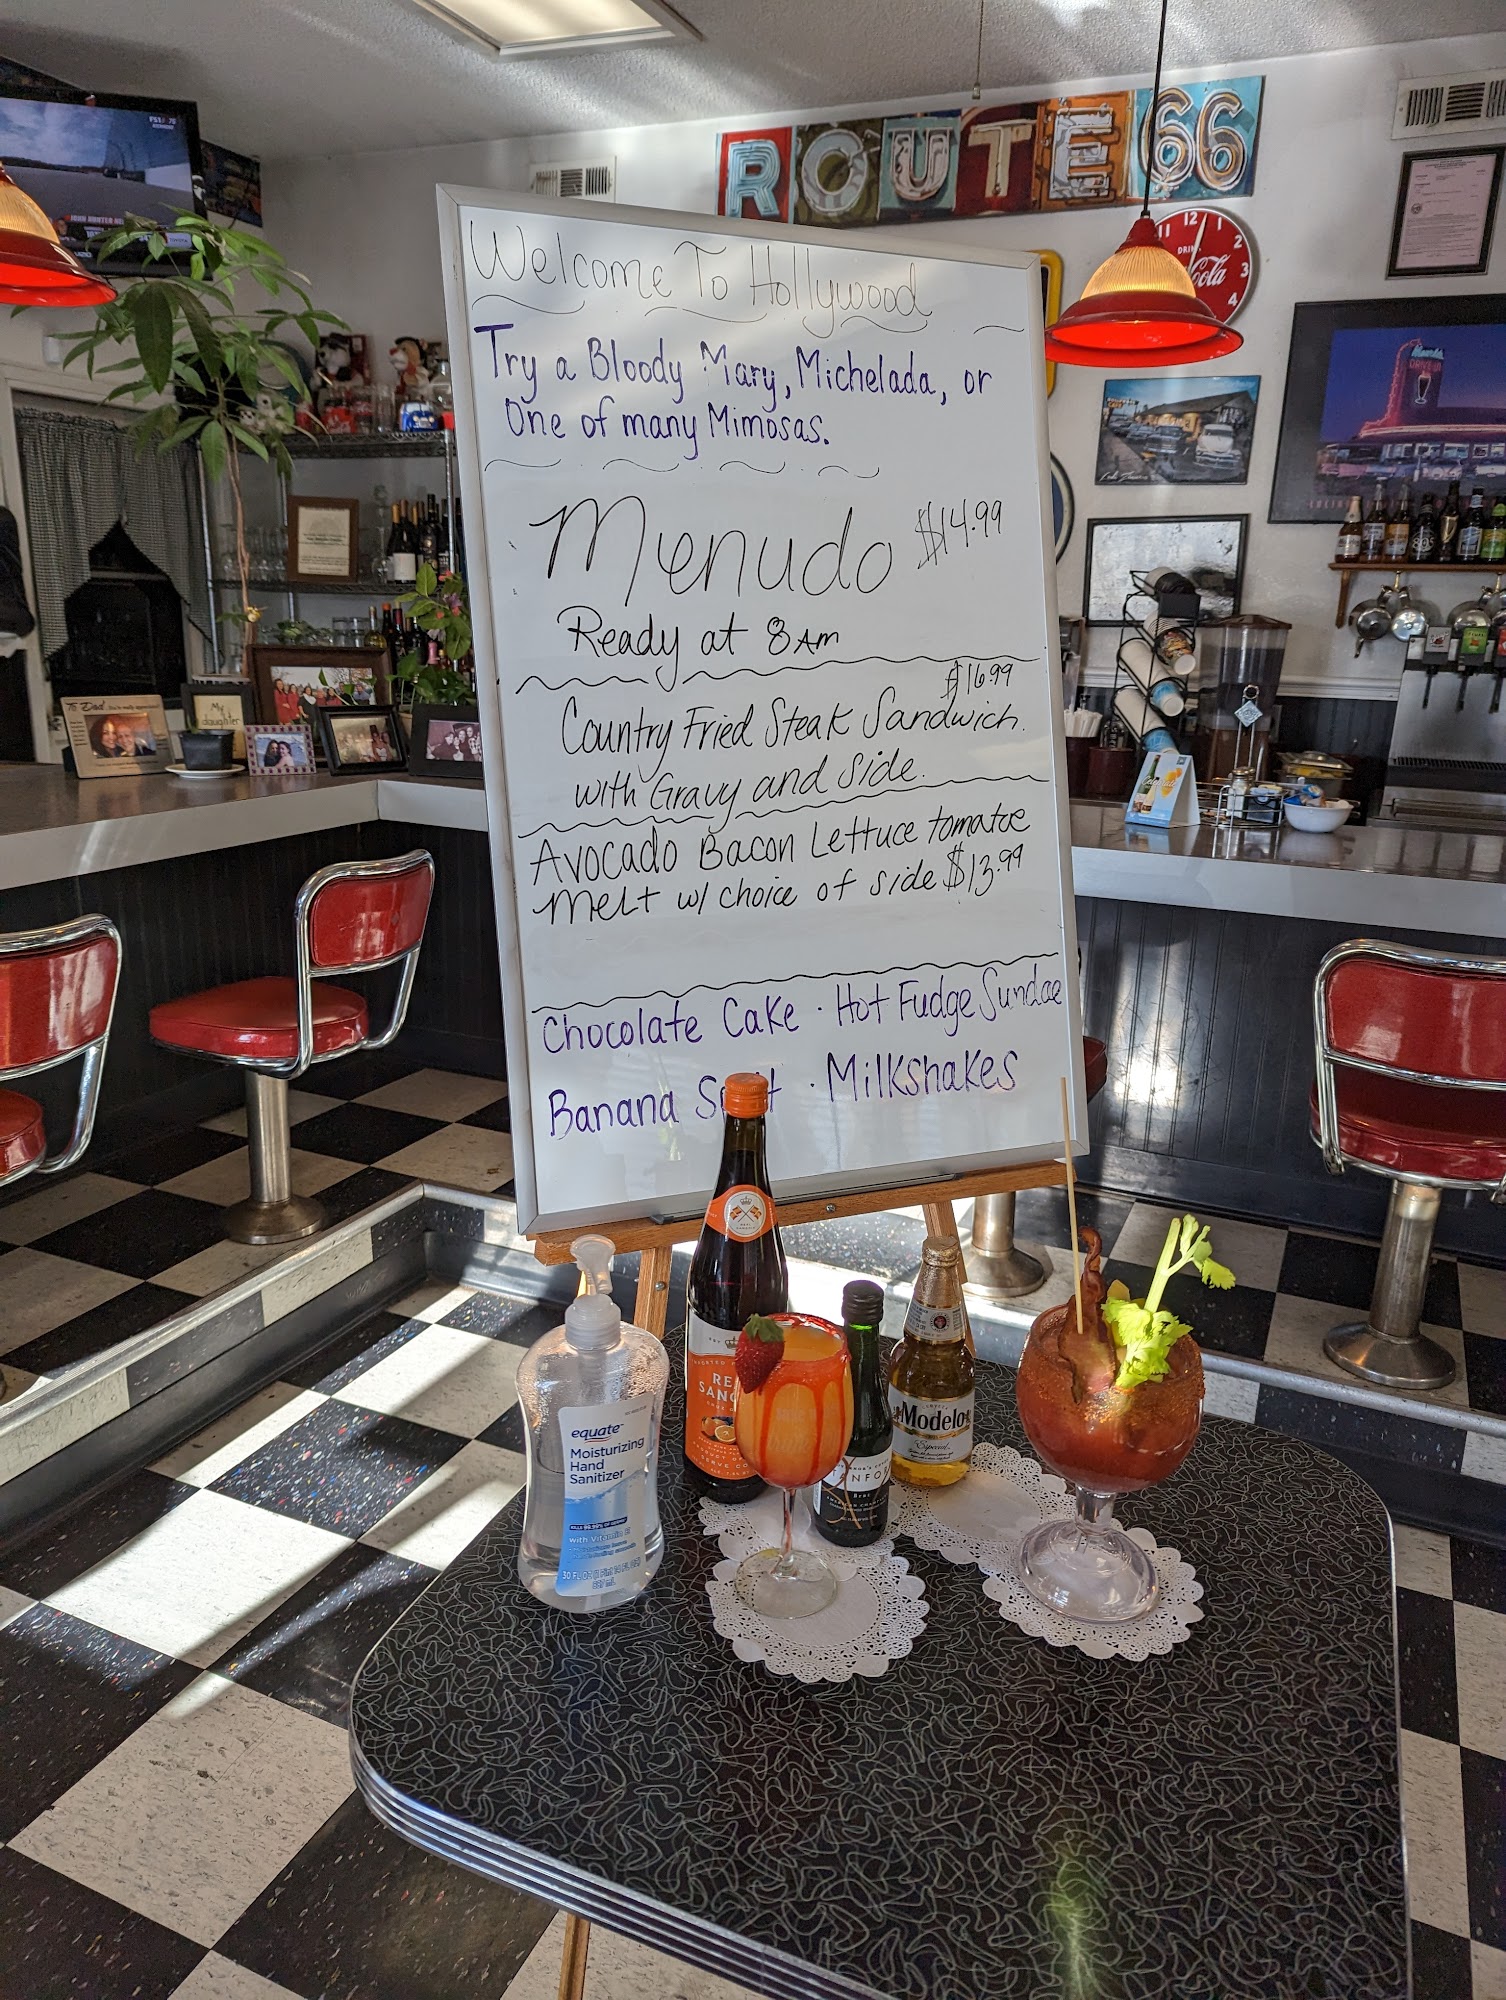 ROUTE 66
FS1
12
1
11
2
3
4
DRINK
Coca-Cola
Welcome To Hollywood
Try a Bloody Mary, Michelada, or
One of many Mimosas.
Menudo $14.99
Ready at 8 Am
$16.99
Country Fried Steak Sandwich.
with Gravy and Side.
Avocado Bacon Lettuce tomatoe
Melt w/ choice of side $13.99
Chocolate Cake · Hot Fudge Sundae
Banana Split · Milkshakes
To Dad
My
daughter
equate
Moisturizing
Hand
Sanitizer
KILLS 99.99% OF GERMS
with Vitamin E
30 FL OZ
887 mL
Modelo
Especial
Brut